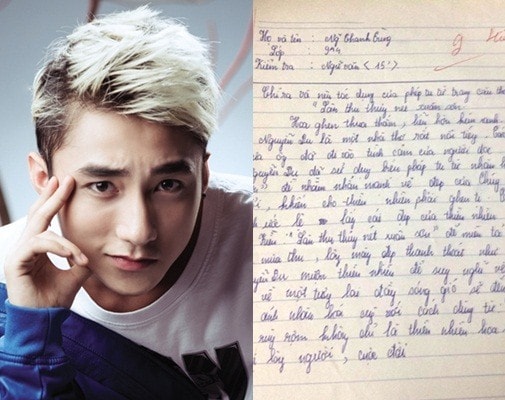 Họ và tên : Mỹ Chanh Cung
Lớp : 9
Kiểm tra : Ngữ văn < 15' >
9
Chỉ ra và nêu tác dụng của phép tu từ trong câu thơ
"Làn thu thủy nét xuân sơn
Hoa ghen thua thắm, liễu hờn kém xanh
Nguyễn Du là một nhà thơ rất nổi tiếng.
đã đi sâu tình cảm của người đọc
Du đã sử dụng biện pháp tu từ nhân
để nhằm nhấn mạnh vẻ đẹp của Chúng
khiến cho thiên nhiên phải ghen tị.
ước lệ lấy cái đẹp của thiên nhiên
"Làn thu thủy nét xuân sơn" để miêu tả
mùa thu, lông mày đẹp thanh thoát như
Du muốn thiên nhiên để suy nghĩ về
về một tương lai đầy sóng gió sẽ
ảnh nhân hóa với cách dùng từ
rằng không chỉ là thiên nhiên hoa
lòng người, cuộc đời